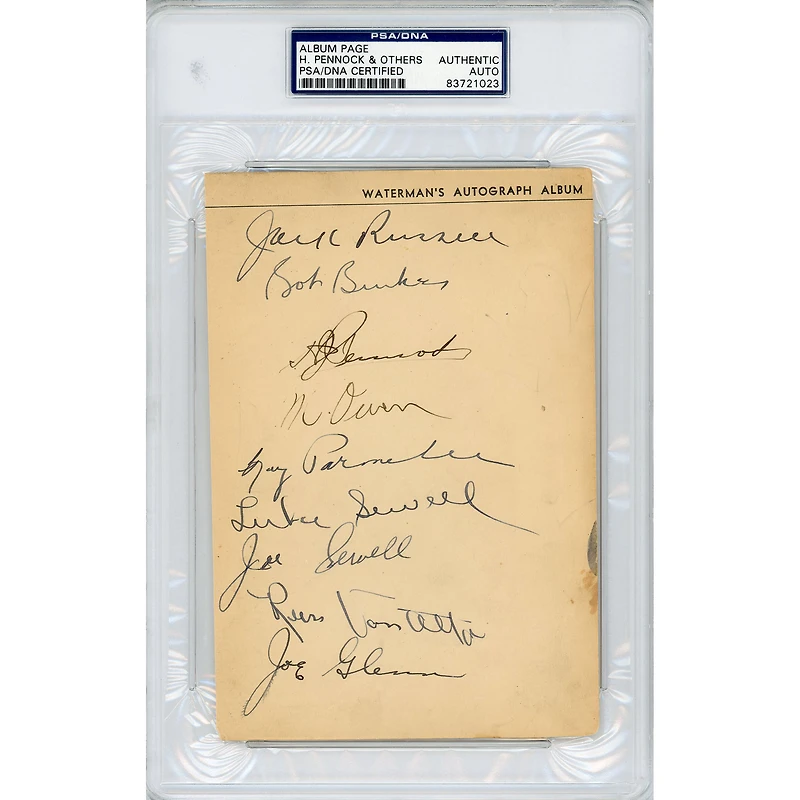 PSA/DNA
ALBUM PAGE
H. PENNOCK & OTHERS AUTHENTIC
PSA/DNA CERTIFIED AUTO
83721023
WATERMAN'S AUTOGRAPH ALBUM
Jack Russell
Bob
H J Pennock
M. Owen
Roy Parmelee
Luke Sewell
Joe Sewell
Russ Van Atta
Joe Glenn